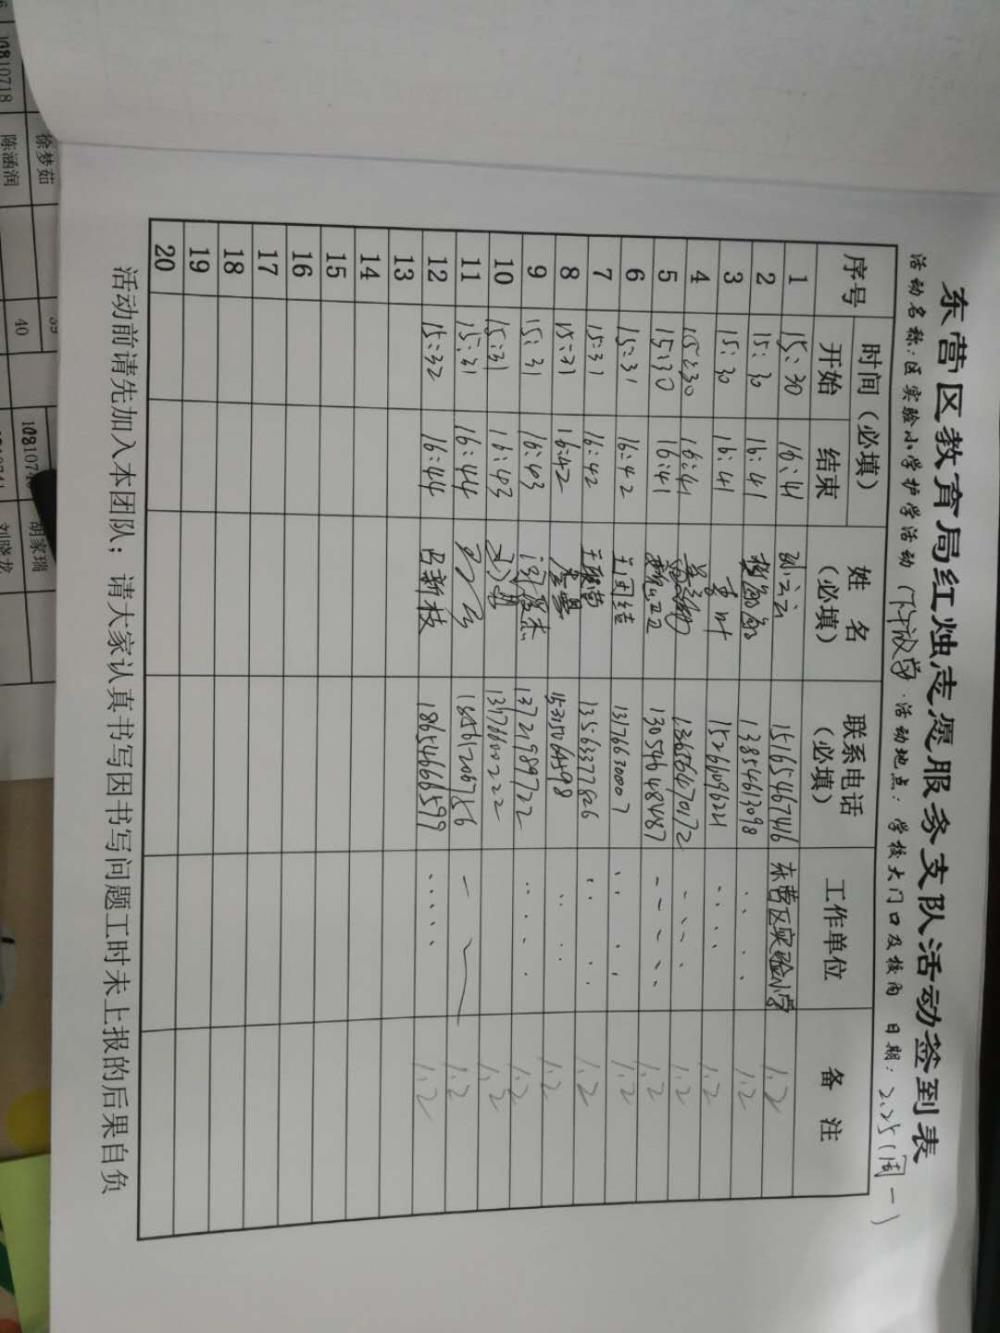 东营区教育局红烛志愿服务支队活动签到表
活动名称:区实验小学护学活动(下午放学 活动地点:学校大门口及校内 日期:2.25(周一)
序号 时间(必填) 姓名(必填) 联系电话(必填) 工作单位 备注
开始 结束
1 15:30 16:41 15165467416 东营区实验小学 1.2
2 15:30 16:41 13854613098 1.2
3 15:30 16:41 15261096221 1.2
4 15:30 16:41 136564670172 1.2
5 15:30 16:41 13054648487 1.2
6 15:31 16:42 王团结 13176630007 1.2
7 15:31 16:42 13563377826 1.2
8 15:31 16:42 15315064598 1.2
9 15:31 16:43 13721989722 1.2
10 15:31 16:43 13176600222 1.2
11 15:31 16:44 18561206786 1.2
12 15:32 16:44 吕新枝 18654666599 1.2
13
14
15
16
17
18
19
20
活动前请先加入本团队;请大家认真书写因书写问题工时未上报的后果自负
10810718
徐梦茹
陈涵润
39
40
胡家瑞
刘晓龙